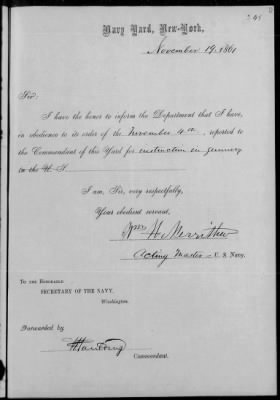 Navy Yard, New-York,
November 19, 1861
Sir:
I have the honor to inform the Department that I have,
in obedience to its order of the November 4th, reported to
the Commandant of this Yard for instruction in gunnery
in the U. S.
I am, Sir, very respectfully,
Your obedient servant,
Wm H. Merrithew
Acting Master U. S. Navy.
To the Honorable
SECRETARY OF THE NAVY,
Washington.
Forwarded by
Commandant.